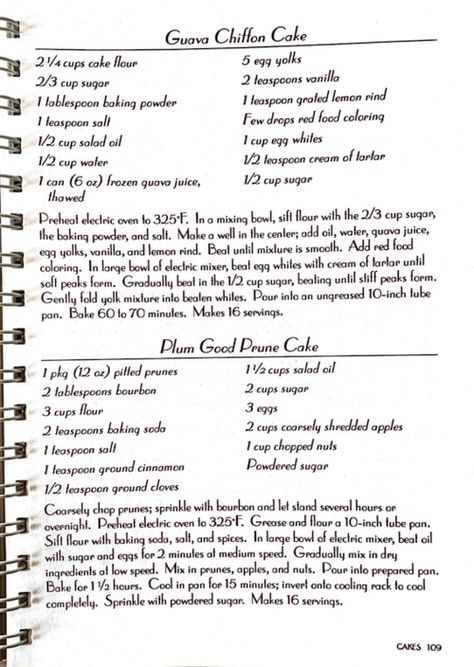 Guava Chiffon Cake
2 1/4 cups cake flour
2/3 cup sugar
1 tablespoon baking powder
1 teaspoon salt
1/2 cup salad oil
1/2 cup water
1 can (6 oz) frozen guava juice,
thawed
5 egg yolks
2 teaspoons vanilla
1 teaspoon grated lemon rind
Few drops red food coloring
1 cup egg whites
1/2 teaspoon cream of tartar
1/2 cup sugar
Preheat electric oven to 325°F. In a mixing bowl, sift flour with the 2/3 cup sugar,
the baking powder, and salt. Make a well in the center; add oil, water, guava juice,
egg yolks, vanilla, and lemon rind. Beat until mixture is smooth. Add red food
coloring. In large bowl of electric mixer, beat egg whites with cream of tartar until
soft peaks form. Gradually beat in the 1/2 cup sugar, beating until stiff peaks form.
Gently fold yolk mixture into beaten whites. Pour into an ungreased 10-inch tube
pan. Bake 60 to 70 minutes. Makes 16 servings.
Plum Good Prune Cake
1 pkg (12 oz) pitted prunes
2 tablespoons bourbon
3 cups flour
2 teaspoons baking soda
1 teaspoon salt
1 teaspoon ground cinnamon
1/2 teaspoon ground cloves
1 1/2 cups salad oil
2 cups sugar
3 eggs
2 cups coarsely shredded apples
1 cup chopped nuts
Powdered sugar
Coarsely chop prunes; sprinkle with bourbon and let stand several hours or
overnight. Preheat electric oven to 325°F. Grease and flour a 10-inch tube pan.
Sift flour with baking soda, salt, and spices. In large bowl of electric mixer, beat oil
with sugar and eggs for 2 minutes at medium speed. Gradually mix in dry
ingredients at low speed. Mix in prunes, apples, and nuts. Pour into prepared pan.
Bake for 1 1/2 hours. Cool in pan for 15 minutes; invert onto cooling rack to cool
completely. Sprinkle with powdered sugar. Makes 16 servings.
CAKES 109